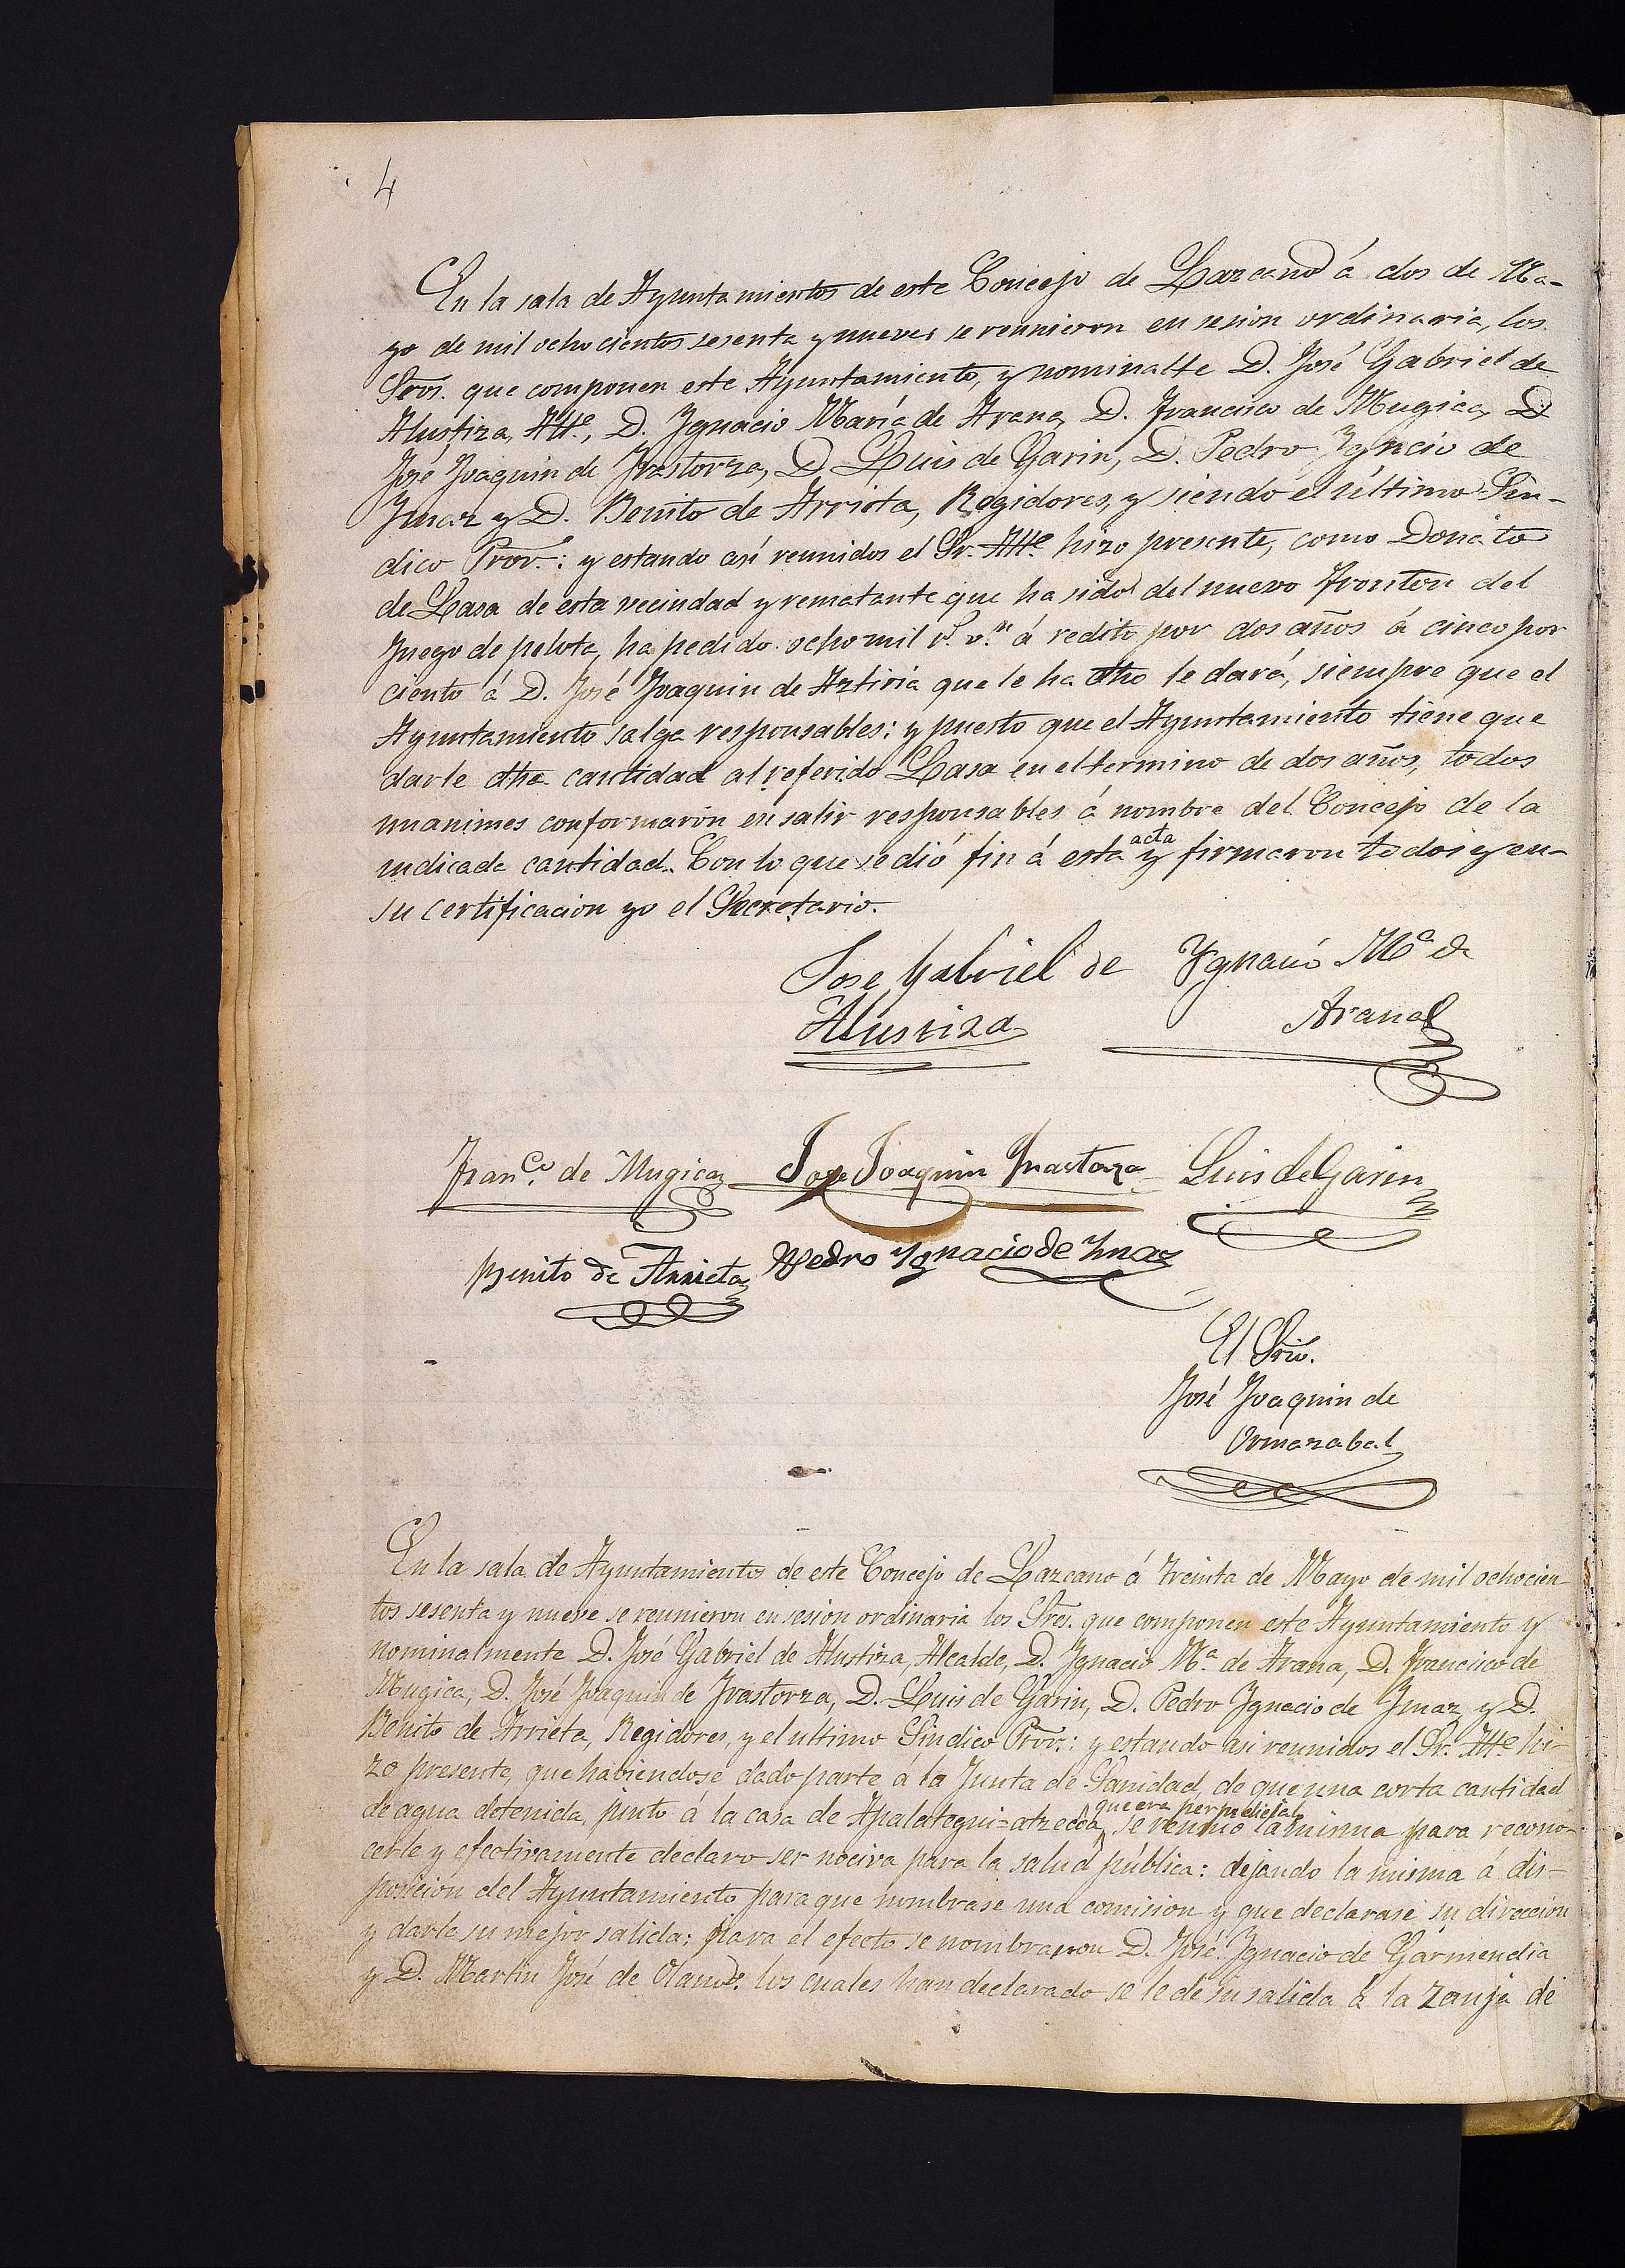 4
En la sala de Ayuntamientos de este Concejo de Lazcano á dos de Ma-
yo de mil ochocientos sesenta y nueve, se reunieron en sesion ordinaria, los
Sres. que componen este Ayuntamiento, y nominalte D. José Gabriel de
Alustiza, Atte., D. Ygnacio María de Arana, D. Francisco de Mugica, D.
José Joaquin de Yrastorza, D. Luis de Garin, D. Pedro Ygncio de
Ymaz y D. Benito de Arrieta, Regidores, y siendo el último Sin-
dico Pror.: y estando asi reunidos el Sr. Atte. hizo presente, como Donato
de Lasa de esta vecindad y rematante que ha sido del nuevo fronton del
Juego de pelota, ha pedido ocho mil rs. vn. á redito por dos años á cinco por
ciento á D. José Joaquin de Aztiria que le ha dho le dará, siempre que el
Ayuntamiento salga responsables: y puesto que el Ayuntamiento tiene que
darle dha cantidad al referido Lasa en el termino de dos años, todos
unanimes conformaron en salir responsables á nombre del Concejo de la
indicada cantidad. Con lo que se dió fin á esta acta y firmaron todos y en
su certificacion yo el Secretario.
Jose Gabriel de Ygnacio Ma. de
Alustiza Arana
Franco. de Mugica Jose Joaquin Yrastorza Luis de Garin
Benito de Arrieta Pedro Ygnacio de Ymaz
El Srio.
José Joaquin de
Ormazabal
En la sala de Ayuntamientos de este Concejo de Lazcano á treinta de Mayo de mil ochocien-
tos sesenta y nueve se reunieron en sesion ordinaria los Sres. que componen este Ayuntamiento y
nominalmente D. José Gabriel de Alustiza, Alcalde, D. Ygnacio Ma. de Arana, D. Francisco de
Mugica, D. José Joaquin de Yrastorza, D. Luis de Garin, D. Pedro Ygnacio de Ymaz, y D.
Benito de Arrieta, Regidores, y el ultimo Sindico Pror.: y estando asi reunidos el Sr. Atte. hi-
zo presente, que habiendose dado parte á la Junta de Sanidad, de que una corta cantidad
de agua detenida, junto á la casa de Apalategui=atzecoa, que era perjudicial, se reunio la misma para recono-
cerle y efectivamente declaro ser nociva para la salud pública: dejando la misma á dis-
posicion del Ayuntamiento para que nombrase una comision y que declarase su direccion
y darle su mejor salida; para el efecto se nombraron D. José Ygnacio de Garmendia
y D. Martin José de los cuales han declarado se le dé su salida á la zanja de